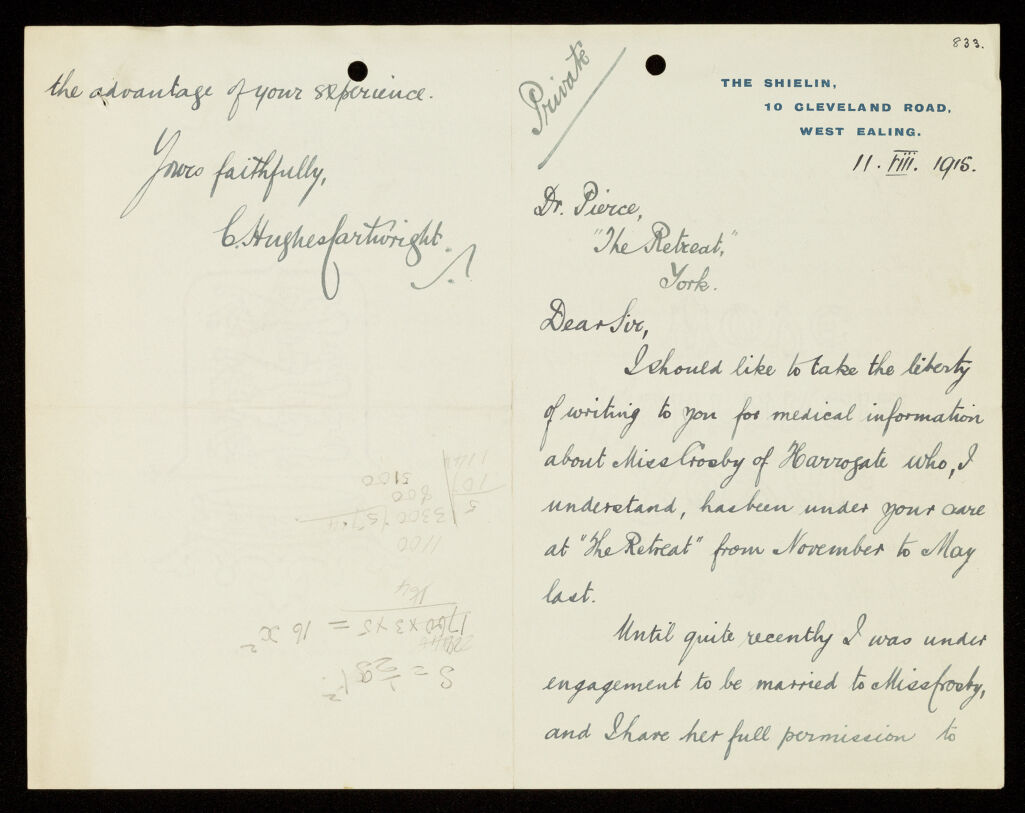 833.
Private
THE SHIELIN,
10 CLEVELAND ROAD,
WEST EALING.
11. VIII. 1915.
Dr. Pierce,
"The Retreat,"
York.
Dear Sir,
I should like to take the liberty
of writing to you for medical information
about Miss Crosby of Harrogate who, I
understand, has been under your care
at "The Retreat" from November to May
last.
Until quite recently I was under
engagement to be married to Miss Crosby,
and I have her full permission to
the advantage of your experience.
Yours faithfully,
C. Hughes Cartwright.
1760 × 3 × 5 = 16 x²
1100
3300
800
5100